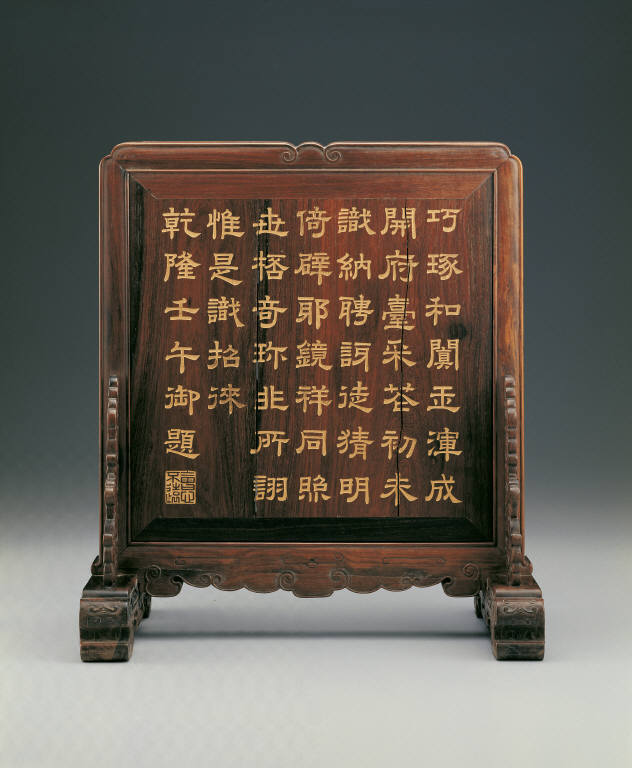 巧琢和闐玉渾成
開府臺初未
識納聘訝徒猜明
倚辟耶鏡祥同照
世桮奇珎非所詡
惟是識招徠
乾隆壬午御題